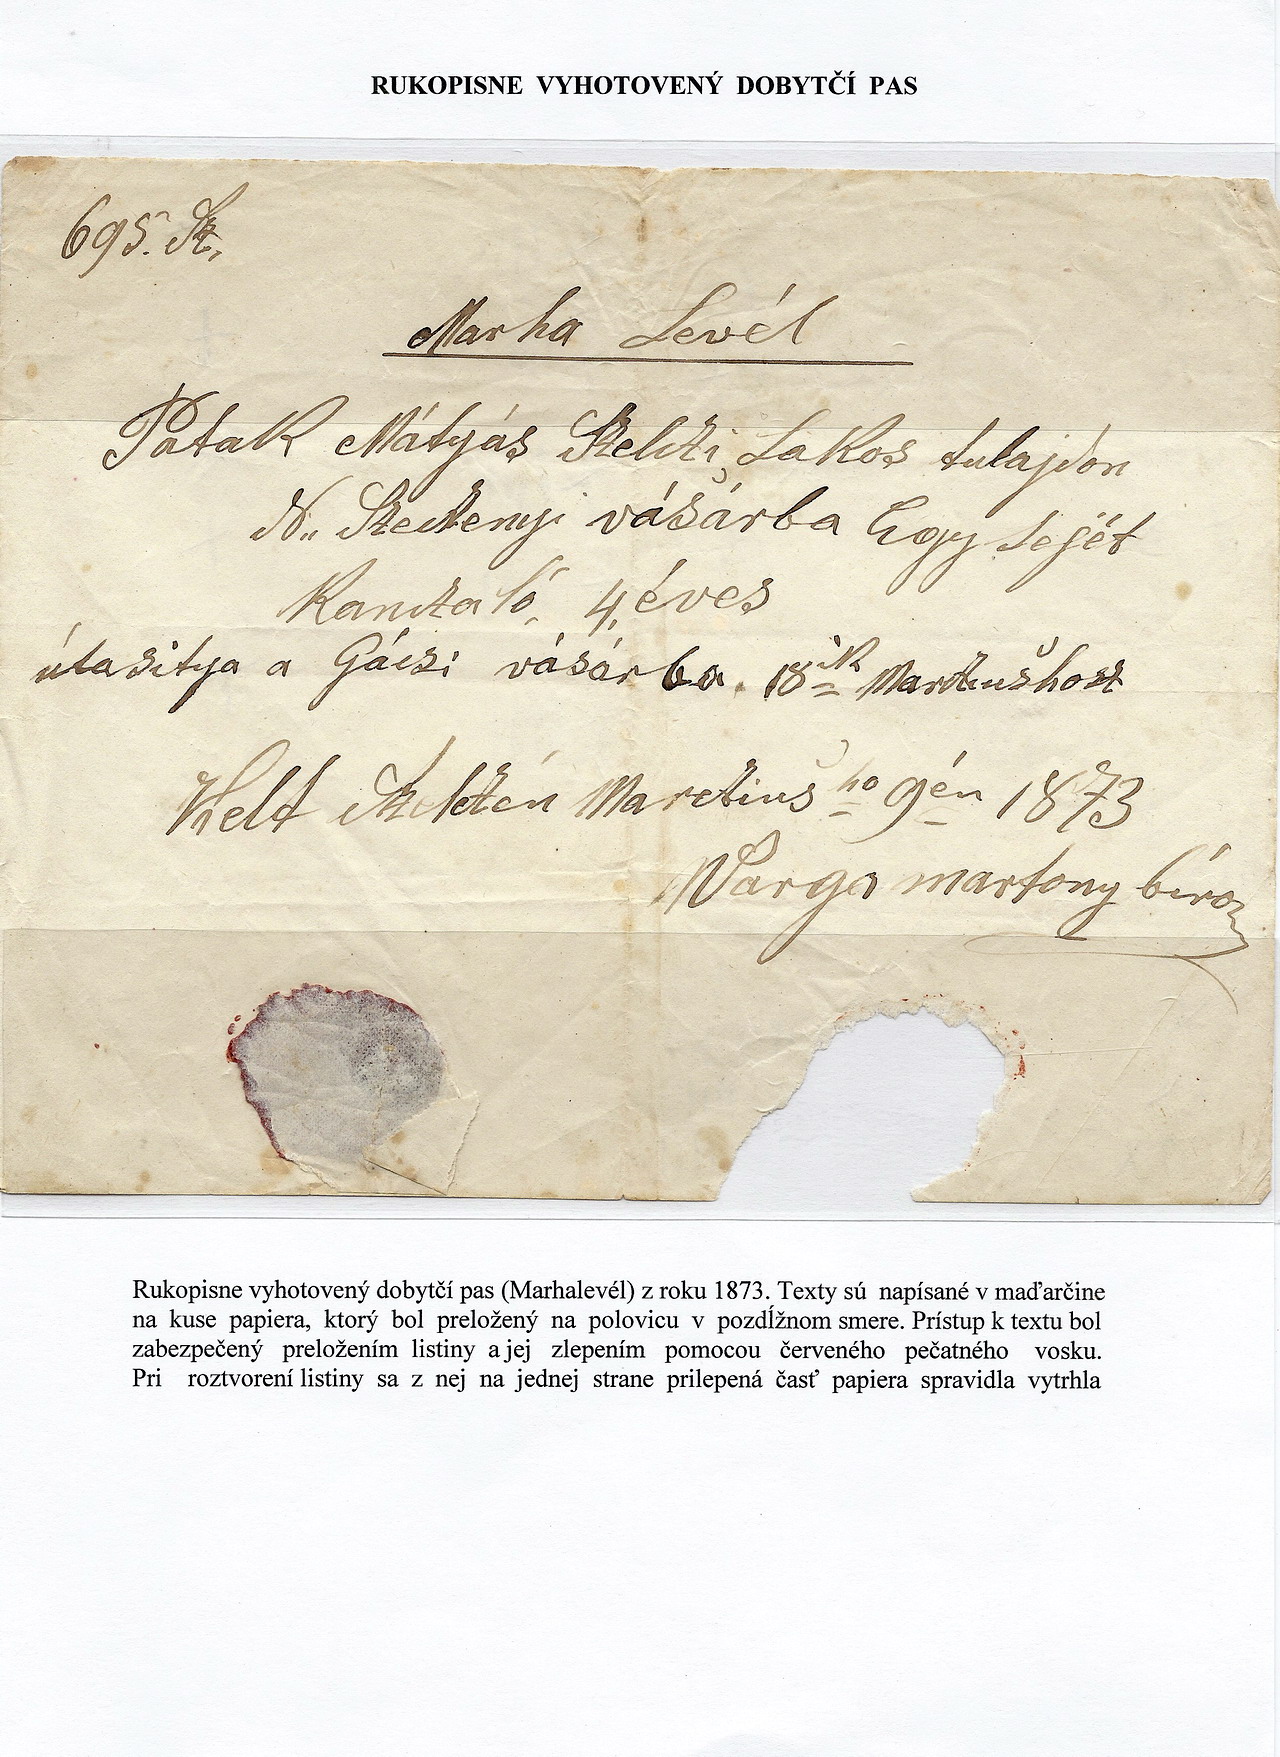 RUKOPISNE VYHOTOVENÝ DOBYTČÍ PAS
695. Sz.
Marha Levél
Patak Mátyás lakos tulajdon
N. vásárba Egy sejét
4 éves
útasitya a Gácsi vásárba. 18ik Martziushoz
Kelt Martzius ho 9én 1873
Varga martony biro
Rukopisne vyhotovený dobytčí pas (Marhalevél) z roku 1873. Texty sú napísané v maďarčine
na kuse papiera, ktorý bol preložený na polovicu v pozdĺžnom smere. Prístup k textu bol
zabezpečený preložením listiny a jej zlepením pomocou červeného pečatného vosku.
Pri roztvorení listiny sa z nej na jednej strane prilepená časť papiera spravidla vytrhla